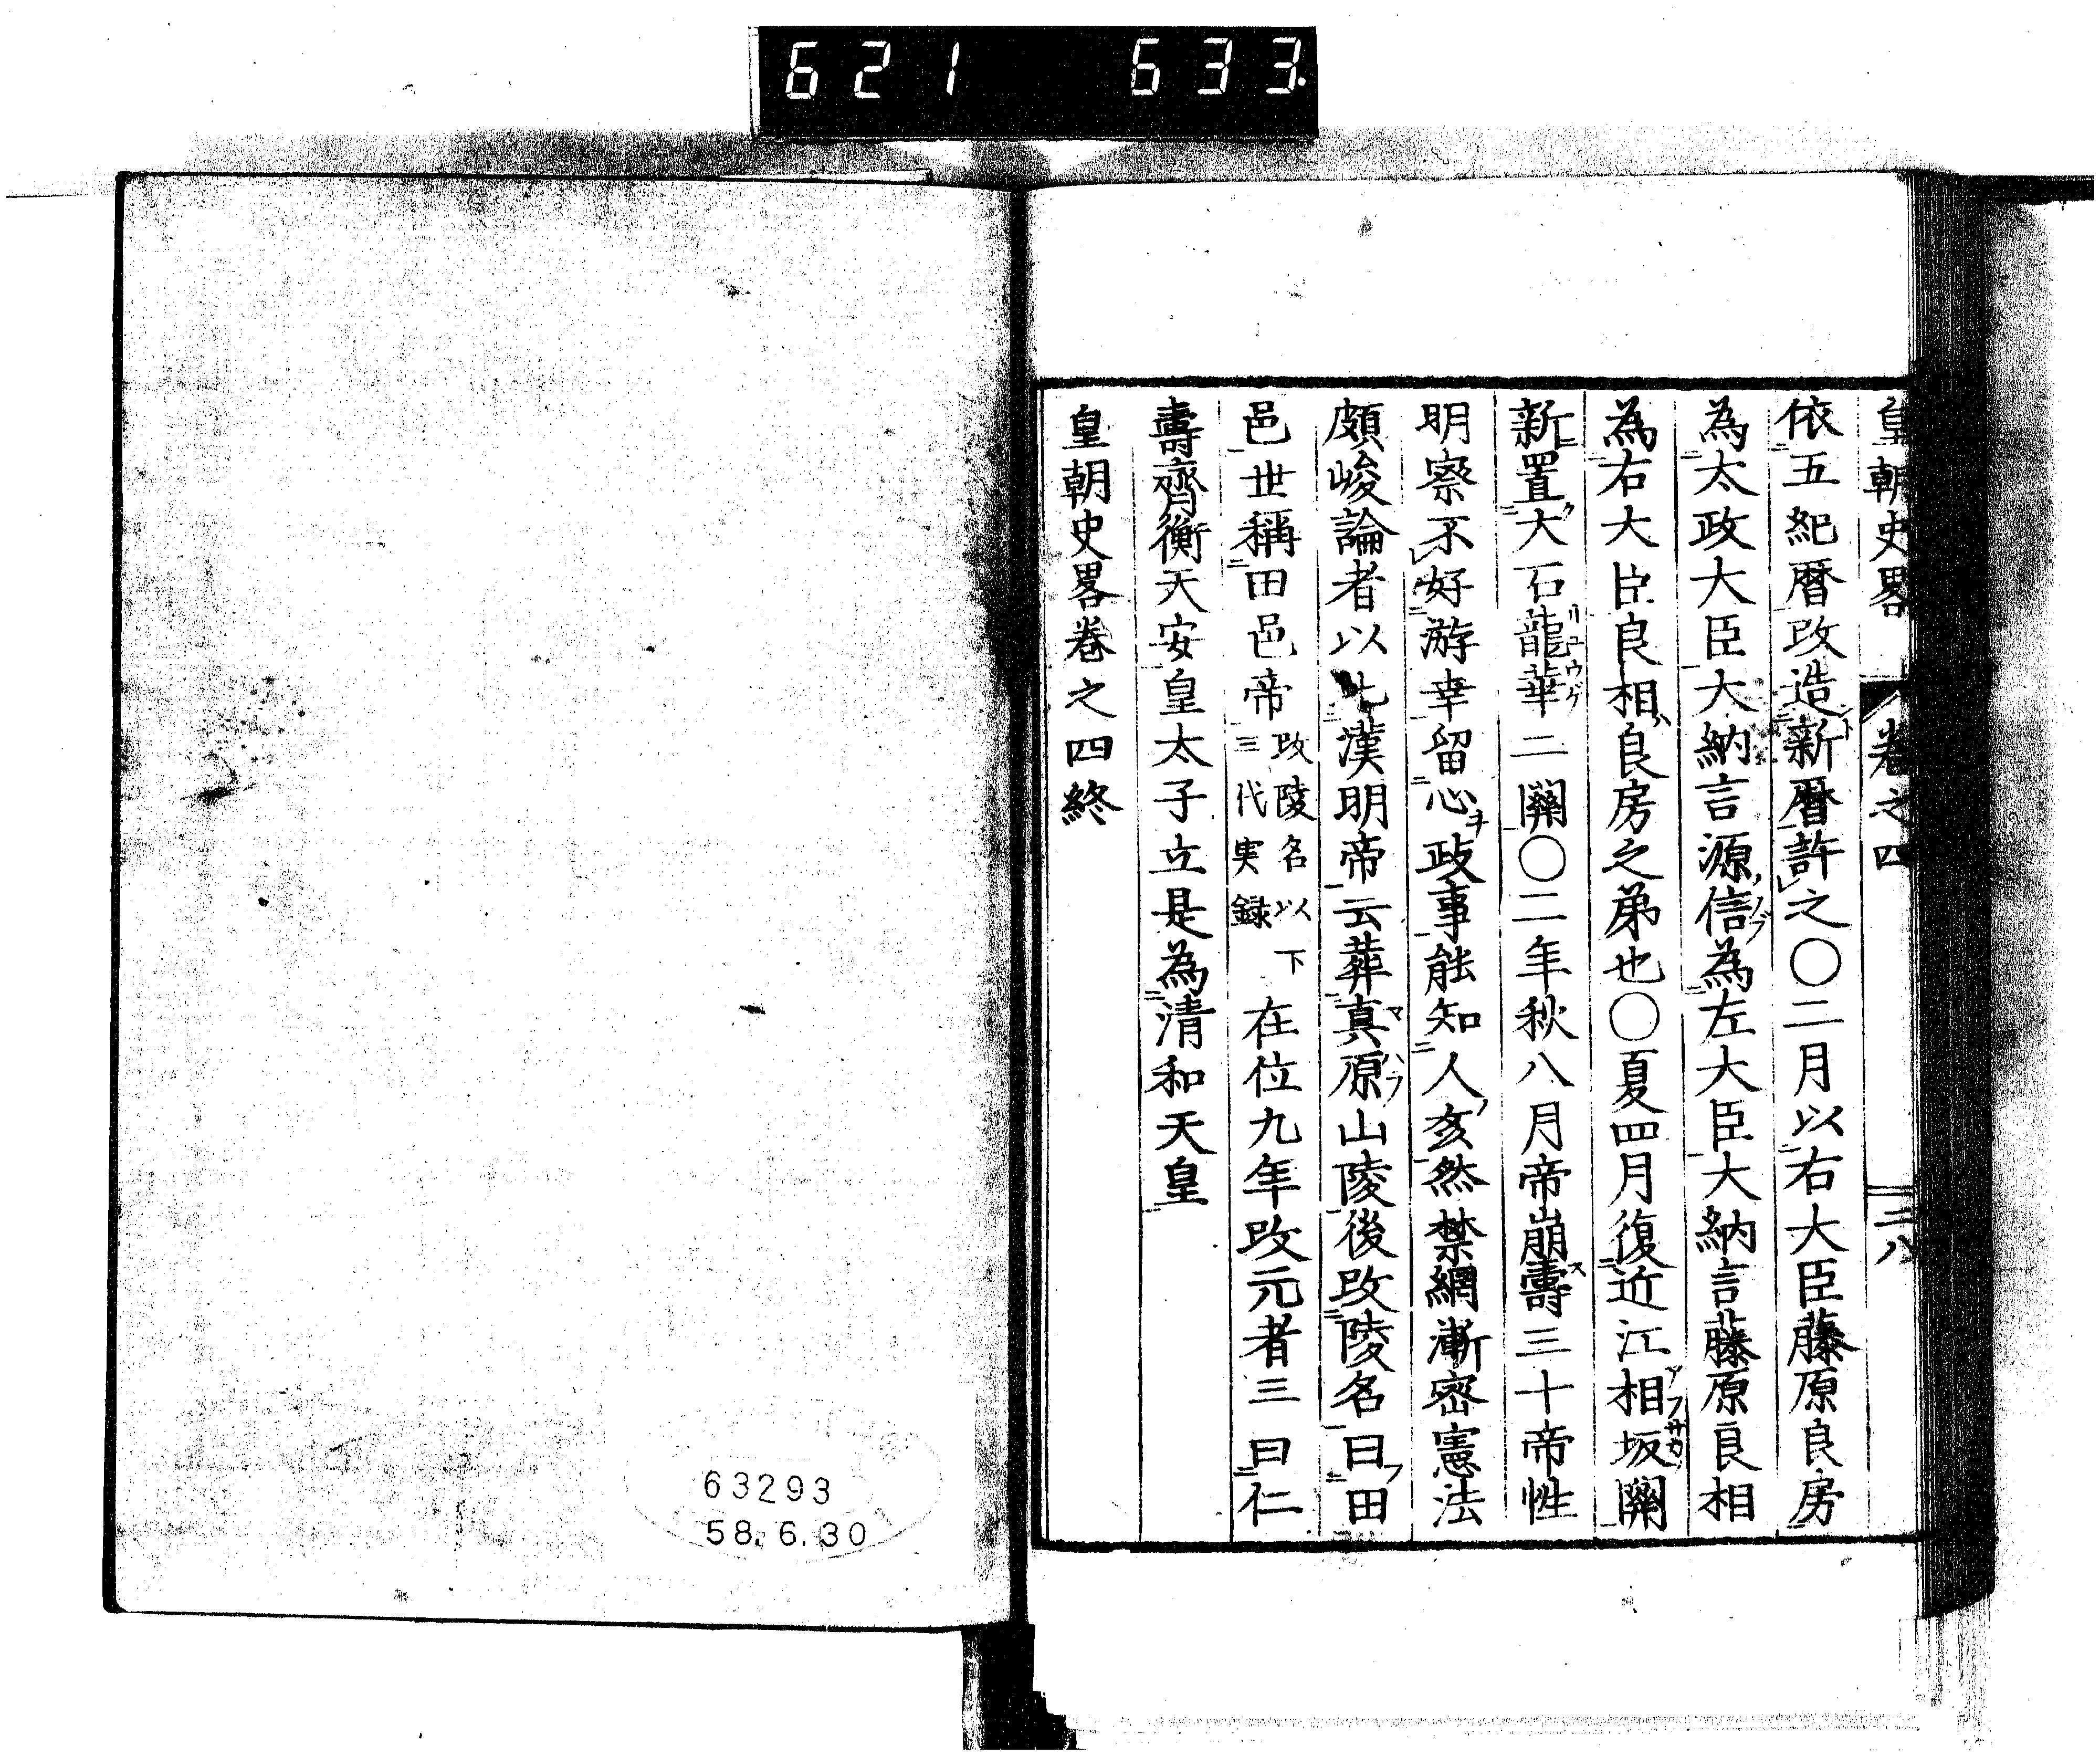 621 633.
皇朝史畧 卷之四 三八
依五紀暦改造新暦許之〇二月以右大臣藤原良房
為太政大臣大納言源信為左大臣大納言藤原良相
為右大臣良相良房之弟也〇夏四月復近江相坂關
新置大石龍華二關〇二年秋八月帝崩壽三十帝性
明察不好游幸留心政事能知人亥然禁網漸密憲法
頗峻論者以比漢明帝云葬真原山陵後改陵名曰田
邑世稱田邑帝改陵名以下三代実録在位九年改元者三曰仁
壽齊衡天安皇太子立是為清和天皇
皇朝史畧卷之四終
63293
58.6.30